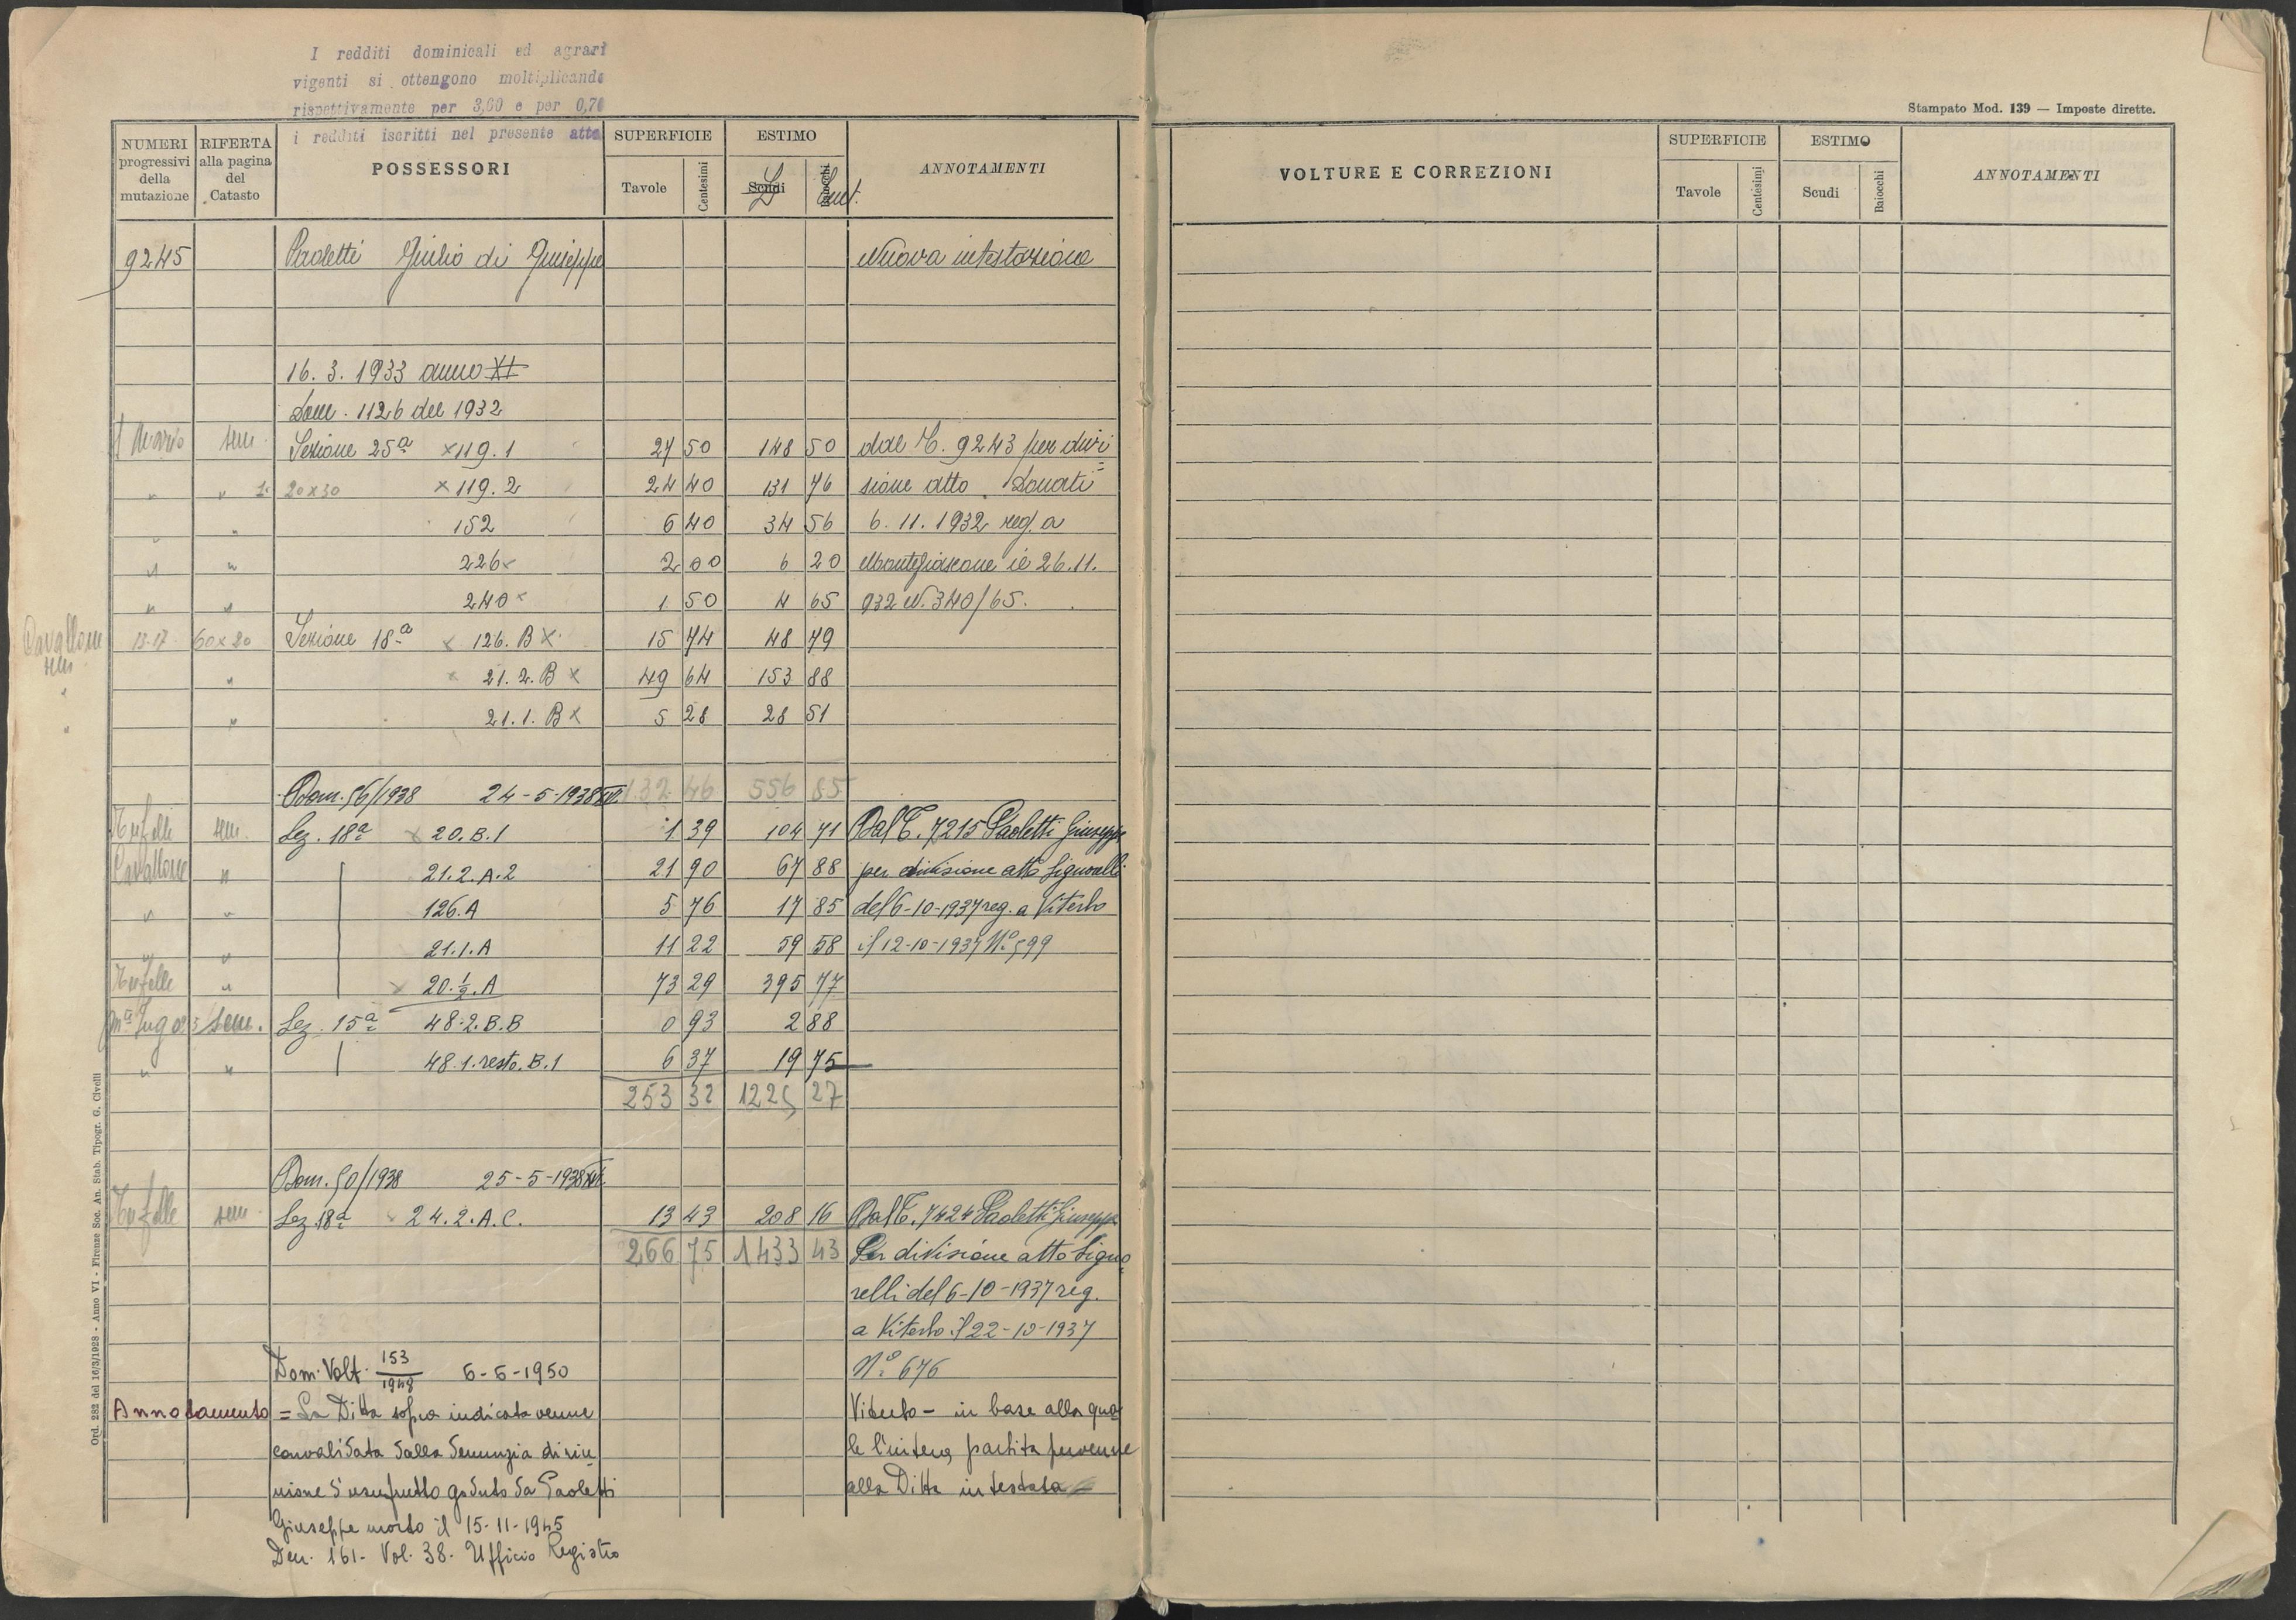 I redditi dominicali ed agrari
vigenti si ottengono moltiplicando
rispettivamente per 3,60 e per 0,70
i redditi iscritti nel presente atto
Stampato Mod. 139 — Imposte dirette.
NUMERI progressivi della mutazione RIFERTA alla pagina del Catasto POSSESSORI SUPERFICIE Tavole Centesimi ESTIMO Scudi Baiocchi £ Cent. ANNOTAMENTI
VOLTURE E CORREZIONI SUPERFICIE Tavole Centesimi ESTIMO Scudi Baiocchi ANNOTAMENTI
9245 Paoletti Giulio di Giuseppe Nuova intestazione
16. 3. 1933 anno XI
Dom. 1126 del 1932
sem. Sezione 25ª × 119. 1 27 50 148 50 dal C. 9243 per divi
" " 20 x 30 × 119. 2 24 40 131 76 sione atto Donati
" " 152 6 40 34 56 6. 11. 1932 reg. a
" " 226 × 2 00 6 20 Montefiascone il 26.11.
" " 240 × 1 50 4 65 932 N. 340/65.
Cavallone sem 13-17 60 x 20 Sezione 18ª × 126. B × 15 74 48 79
" " × 21. 2. B × 49 64 153 88
" " 21. 1. B × 5 28 28 51
132 46 556 85
Dom. 56/1938 24-5-1938 XVI
sem. Sez. 18ª × 20. B. 1 1 39 104 71 Dal C. 7215 Paoletti Giuseppe
Cavallone " 21. 2. A. 2 21 90 67 88 per divisione atto Signorelli
" " 126. A 5 76 17 85 del 6-10-1937 reg. a Viterbo
" " 21. 1. A 11 22 59 58 il 12-10-1937 N.º 599
" × 20. ½. A 73 29 395 77
sem. Sez. 15ª 48. 2. B. B 0 93 2 88
" " 48. 1. resto. B. 1 6 37 19 75
253 32 1225 27
Dom. 50/1938 25-5-1938 XVI
sem Sez. 18ª × 24. 2. A. C. 13 43 208 16 Dal C. 7424 Paoletti Giuseppe
266 75 1433 43 Per divisione atto Signo
relli del 6-10-1937 reg.
a Viterbo il 22-10-1937
N.º 676
Dom. Volt. 153/1948 6-6-1950
Annotamento = La Ditta sopra indicata venne
convalidata dalla denunzia di riu
nione d'usufrutto goduto da Paoletti
Giuseppe morto il 15-11-1945
Den. 161- Vol. 38. Ufficio Registro
Viterbo - in base alla qua
le l'intera partita pervenne
alla Ditta intestata
Ord. 282 del 16/3/1928 - Anno VI - Firenze Soc. An. Stab. Tipogr. G. Civelli